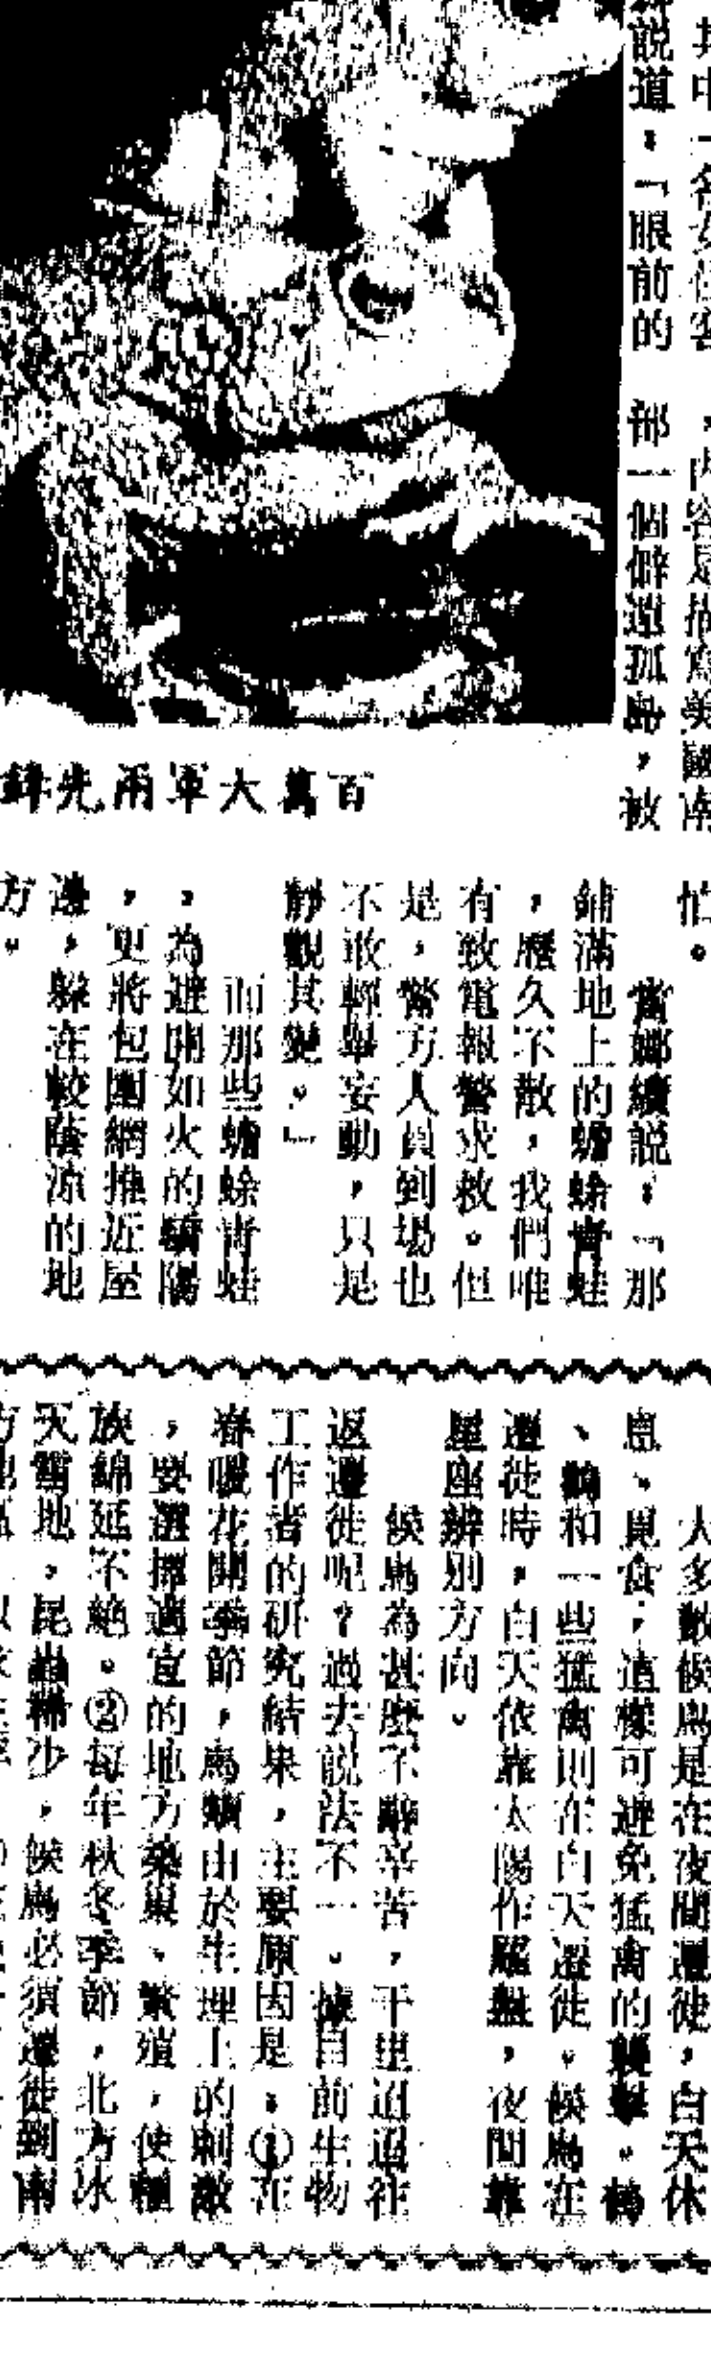 其中一名女住客
說道：「眼前的
，內容是描寫美國南
部一個僻遠孤島，被
百萬大軍兩先鋒
怕。
當娜續說：「那
鋪滿地上的蟾蜍青蛙
，歷久不散，我們唯
有致電報警求救。但
是，警方人員到場也
不敢輕舉妄動，只是
靜觀其變。」
而那些蟾蜍青蛙
，為避開如火的驕陽
，更將包圍網推近屋
邊，躲在較蔭涼的地
方。
大多數候鳥是在夜間遷徙，白天休
息、覓食，這樣可避免猛禽的襲擊。鶴
、鶴和一些猛禽則在白天遷徙。候鳥在
遷徙時，白天依靠太陽作羅盤，夜間靠
星座辨別方向。
候鳥為甚麼不辭辛苦，千里迢迢往
返遷徙呢？過去說法不一。據目前生物
工作者的研究結果，主要原因是：①在
春暖花開季節，鳥類由於生理上的刺激
，要選擇適宜的地方築巢、繁殖，使種
族綿延不絕。②每年秋冬季節，北方冰
天雪地，昆蟲稀少，候鳥必須遷徙到南